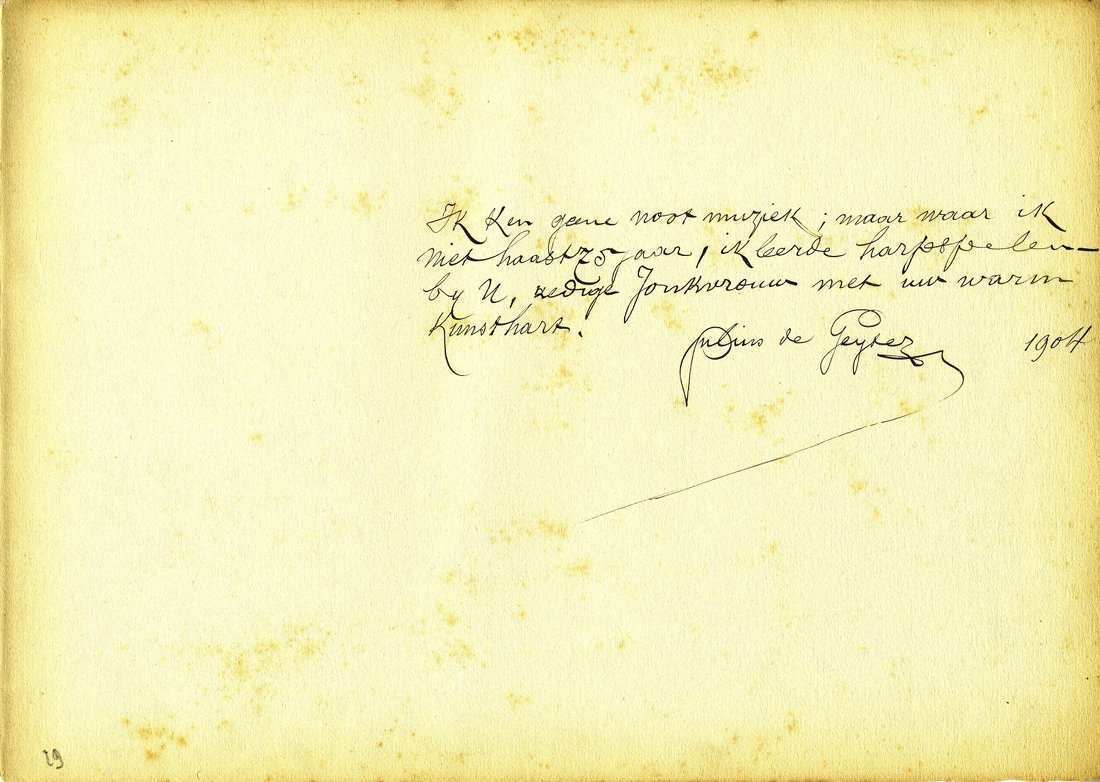 Ik Ken geene noot muziek; maar waar ik
niet haast 75 jaar, ik leerde harpspelen
by U, zedige Jonkvrouw met uw warm
Kunsthart.
Julius de Geyter 1904
19